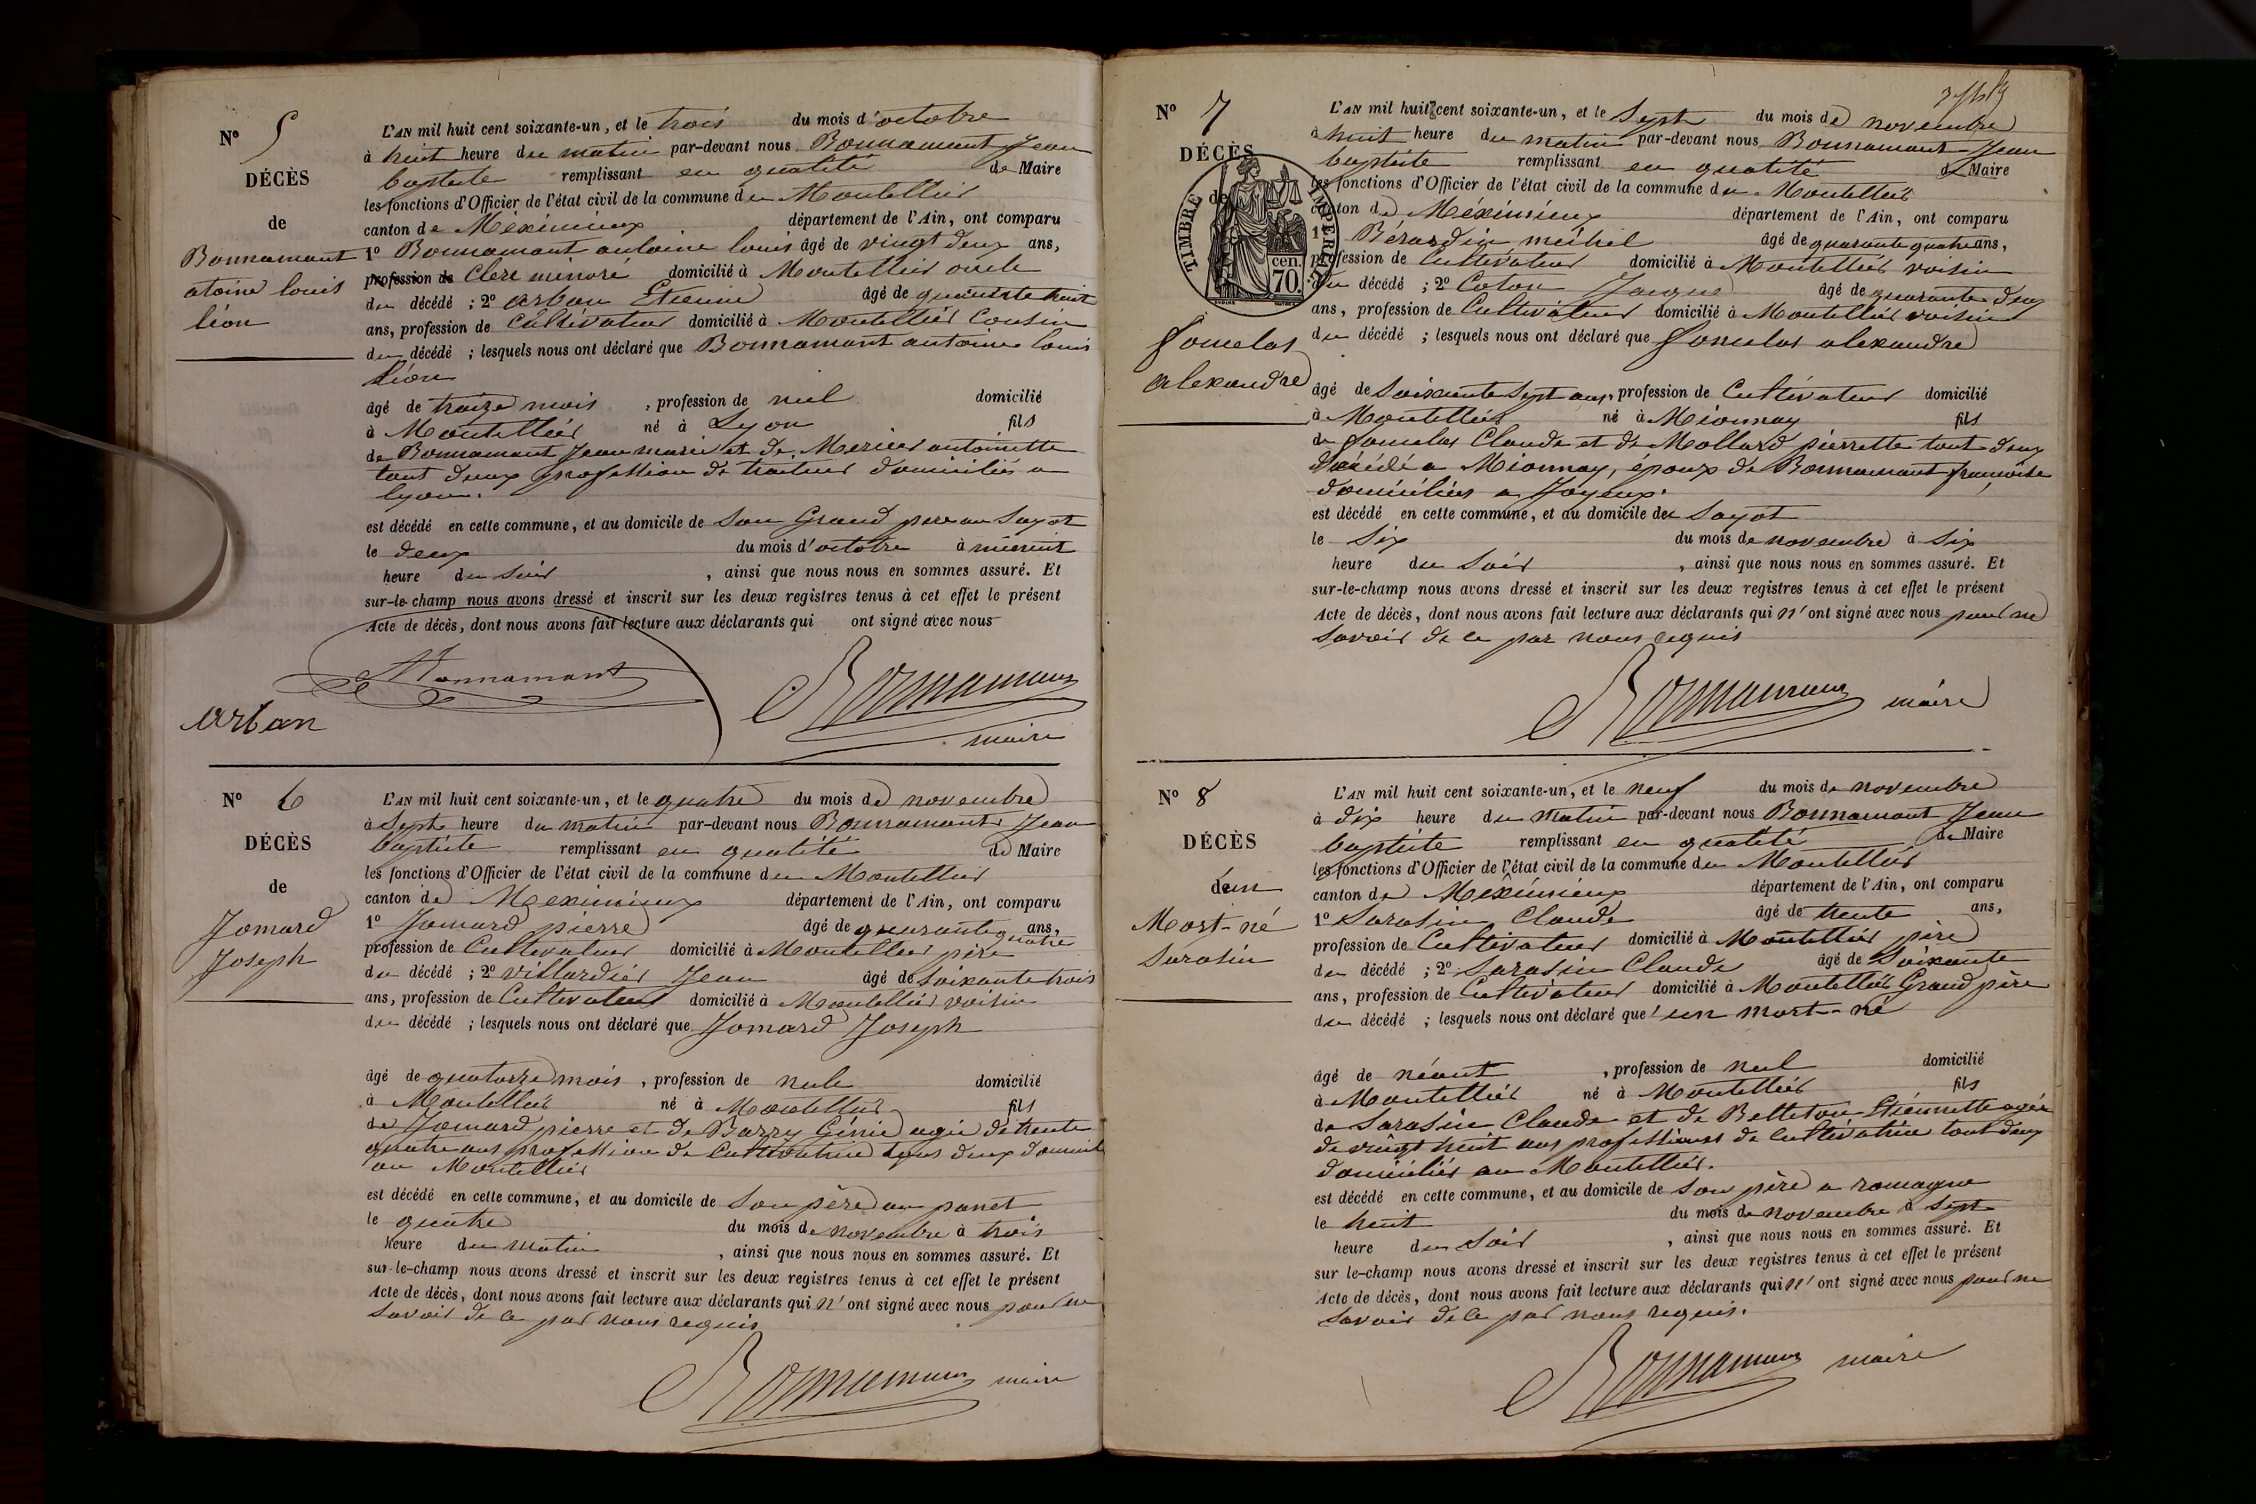 N° 5
DÉCÈS
de
Bonnamant
atoine louis
léon
L'AN mil huit cent soixante-un, et le trois du mois d'octobre
à huit heure du matin par-devant nous Bonnamant Jean
baptiste remplissant en qualité de Maire
les fonctions d'Officier de l'état civil de la commune du Montellier
canton de Méximieux département de l'Ain, ont comparu
1° Bonnamant antoine louis âgé de vingt deux ans,
profession de Clerc minoré domicilié à Montellier oncle
du décédé ; 2° arban Etienne âgé de quarante huit
ans, profession de Cultivateur domicilié à Montellier Cousin
du décédé ; lesquels nous ont déclaré que Bonnamant antoine louis
léon
âgé de traize mois , profession de nul domicilié
à Montellier né à Lyon fils
de Bonnamant Jean marie et de Mercier antoinette
tout deux profession de traiteur domiciliés a
lyon.
est décédé en cette commune, et au domicile de Son Grand pere au Sayot
le deux du mois d'octobre à minuit
heure du soir , ainsi que nous nous en sommes assuré. Et
sur-le-champ nous avons dressé et inscrit sur les deux registres tenus à cet effet le présent
Acte de décès, dont nous avons fait lecture aux déclarants qui ont signé avec nous
Bonnamant
Bonnamant
arban
maire
N° 6
DÉCÈS
de
Jomard
Joseph
L'AN mil huit cent soixante-un, et le quatre du mois de novembre
à Sept heure du matin par-devant nous Bonnamant Jean
baptiste remplissant en qualité de Maire
les fonctions d'Officier de l'état civil de la commune du Montellier
canton de Meximieux département de l'Ain, ont comparu
1° Jomard pierre âgé de quarante quatre ans,
profession de Cultivateur domicilié à Montellier père
du décédé ; 2° villardier Jean âgé de Soixante trois
ans, profession de Cultivateur domicilié à Montellier voisin
du décédé ; lesquels nous ont déclaré que Jomard Joseph
âgé de quatorze mois , profession de nule domicilié
à Montellier né à Montellier fils
de Jomard pierre et de Barry Génie agée de trente
quatre ans profession de Cultivatrice tous deux domicil
au Montellier
est décédé en cette commune, et au domicile de Son père au panet
le quatre du mois de novembre à trois
heure du matin , ainsi que nous nous en sommes assuré. Et
sur-le-champ nous avons dressé et inscrit sur les deux registres tenus à cet effet le présent
Acte de décès, dont nous avons fait lecture aux déclarants qui n'ont signé avec nous pour ne
savoir de ce par nous requis
Bonnamant maire
N° 7
DÉCÈS
de
TIMBRE IMPERIAL
cen.
70.
Fomelas
alexandre
L'AN mil huit cent soixante-un, et le Sept du mois de novembre
à huit heure du matin par-devant nous Bonnamant Jean
baptiste remplissant en qualité de Maire
les fonctions d'Officier de l'état civil de la commune du Montellier
canton de Méximieux département de l'Ain, ont comparu
1° Bérardin michel âgé de quarante quatre ans,
profession de Cultivateur domicilié à Montellier voisin
du décédé ; 2° Coton Jacque âgé de quarante deux
ans, profession de Cultivateur domicilié à Montellier voisin
du décédé ; lesquels nous ont déclaré que Fomelas alexandre
âgé de Soixante Sept ans, profession de Cultivateur domicilié
à Montellier né à Mionnay fils
de Fomelas Claude et de Mollard pierrette tout deux
décédé a Mionnay, époux de Bonnamant françoise
domiciliés a Joyeux.
est décédé en cette commune, et au domicile de Sayot
le Six du mois de novembre à Six
heure du Soir , ainsi que nous nous en sommes assuré. Et
sur-le-champ nous avons dressé et inscrit sur les deux registres tenus à cet effet le présent
Acte de décès, dont nous avons fait lecture aux déclarants qui n'ont signé avec nous pour ne
savoir de ce par nous requis
Bonnamant maire
N° 8
DÉCÈS
d'un
Mort-né
Sarasin
L'AN mil huit cent soixante-un, et le neuf du mois de novembre
à dix heure du matin par-devant nous Bonnamant Jean
baptiste remplissant en qualité de Maire
les fonctions d'Officier de l'état civil de la commune du Montellier
canton de Méximieux département de l'Ain, ont comparu
1° Sarasin Claude âgé de trente ans,
profession de Cultivateur domicilié à Montellier père
du décédé ; 2° Sarasin Claude âgé de Soixante
ans, profession de Cultivateur domicilié à Montellier Grand père
du décédé ; lesquels nous ont déclaré que un mort-né
âgé de néant , profession de nul domicilié
à Montellier né à Montellier fils
de Sarasin Claude et de Belleton Etiennette agée
de vingt huit ans professions de Cultivatrice tout deux
domiciliés au Montellier.
est décédé en cette commune, et au domicile de Son père a romagne
le huit du mois de novembre à Sept
heure du Soir , ainsi que nous nous en sommes assuré. Et
sur le-champ nous avons dressé et inscrit sur les deux registres tenus à cet effet le présent
Acte de décès, dont nous avons fait lecture aux déclarants qui n'ont signé avec nous pour ne
savoir de ce par nous requis.
Bonnamant maire